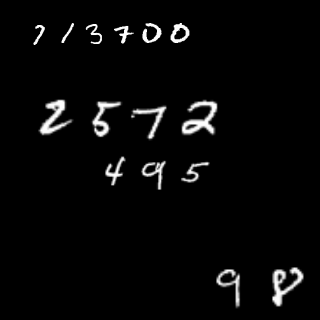 713700
2572
495
98